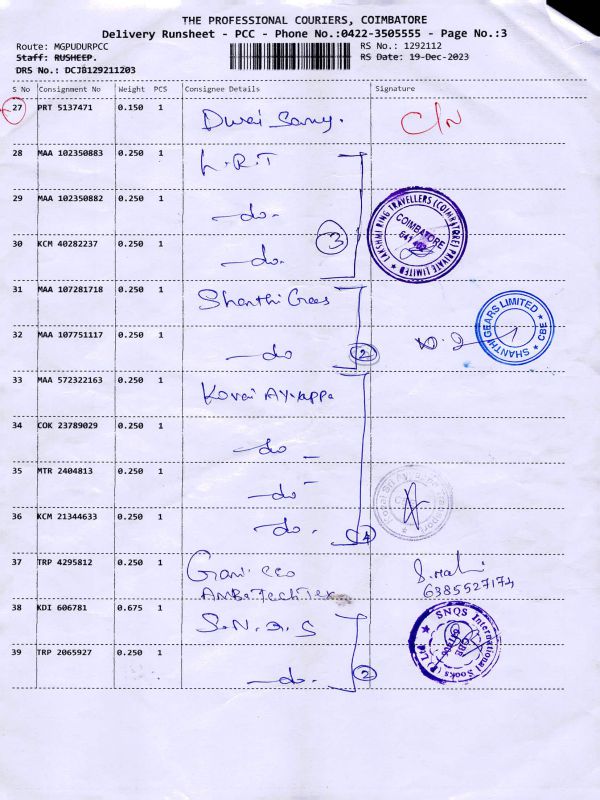 THE PROFESSIONAL COURIERS, COIMBATORE
Delivery Runsheet - PCC - Phone No.:0422-3505555 - Page No.:3
Route: MGPUDURPCC RS No.: 1292112
Staff: RUSHEEP. RS Date: 19-Dec-2023
DRS No.: DCJB129211203
S No Consignment No Weight PCS Consignee Details Signature
27 PRT 5137471 0.150 1 C/N
28 MAA 102350883 0.250 1 L.R.T
29 MAA 102350882 0.250 1 -do-
30 KCM 40282237 0.250 1 -do- 3
LAKSHMI RING TRAVELLERS (COIMBATORE) PRIVATE LIMITED
COIMBATORE
31 MAA 107281718 0.250 1 Shanthi Gears
32 MAA 107751117 0.250 1 -do 2
SHANTHI GEARS LIMITED CBE
33 MAA 572322163 0.250 1 Kovai Ayyappa
34 COK 23789029 0.250 1 -do-
35 MTR 2404813 0.250 1 -do-
36 KCM 21344633 0.250 1 -do. 4
37 TRP 4295812 0.250 1
AmbiTechTex 6385527174
38 KDI 606781 0.675 1 S.N.Q.S
39 TRP 2065927 0.250 1 -do. 2
SNQS International Socks (P) Ltd
CBE